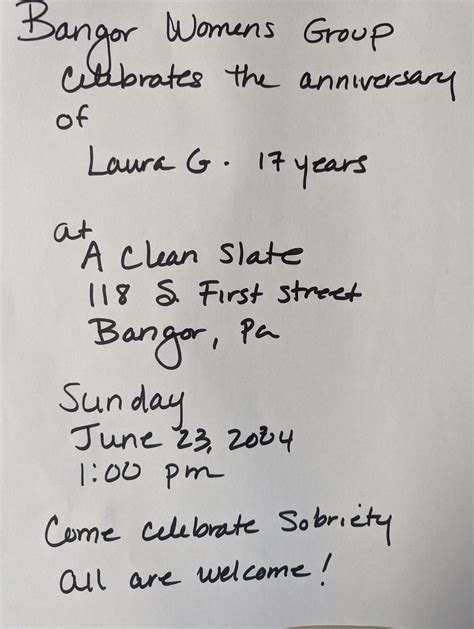 Bangor Womens Group
celebrates the anniversary
of
Laura G. 17 years
at
A Clean Slate
118 S. First street
Bangor, Pa
Sunday
June 23, 2024
1:00 pm
Come celebrate Sobriety
all are welcome!